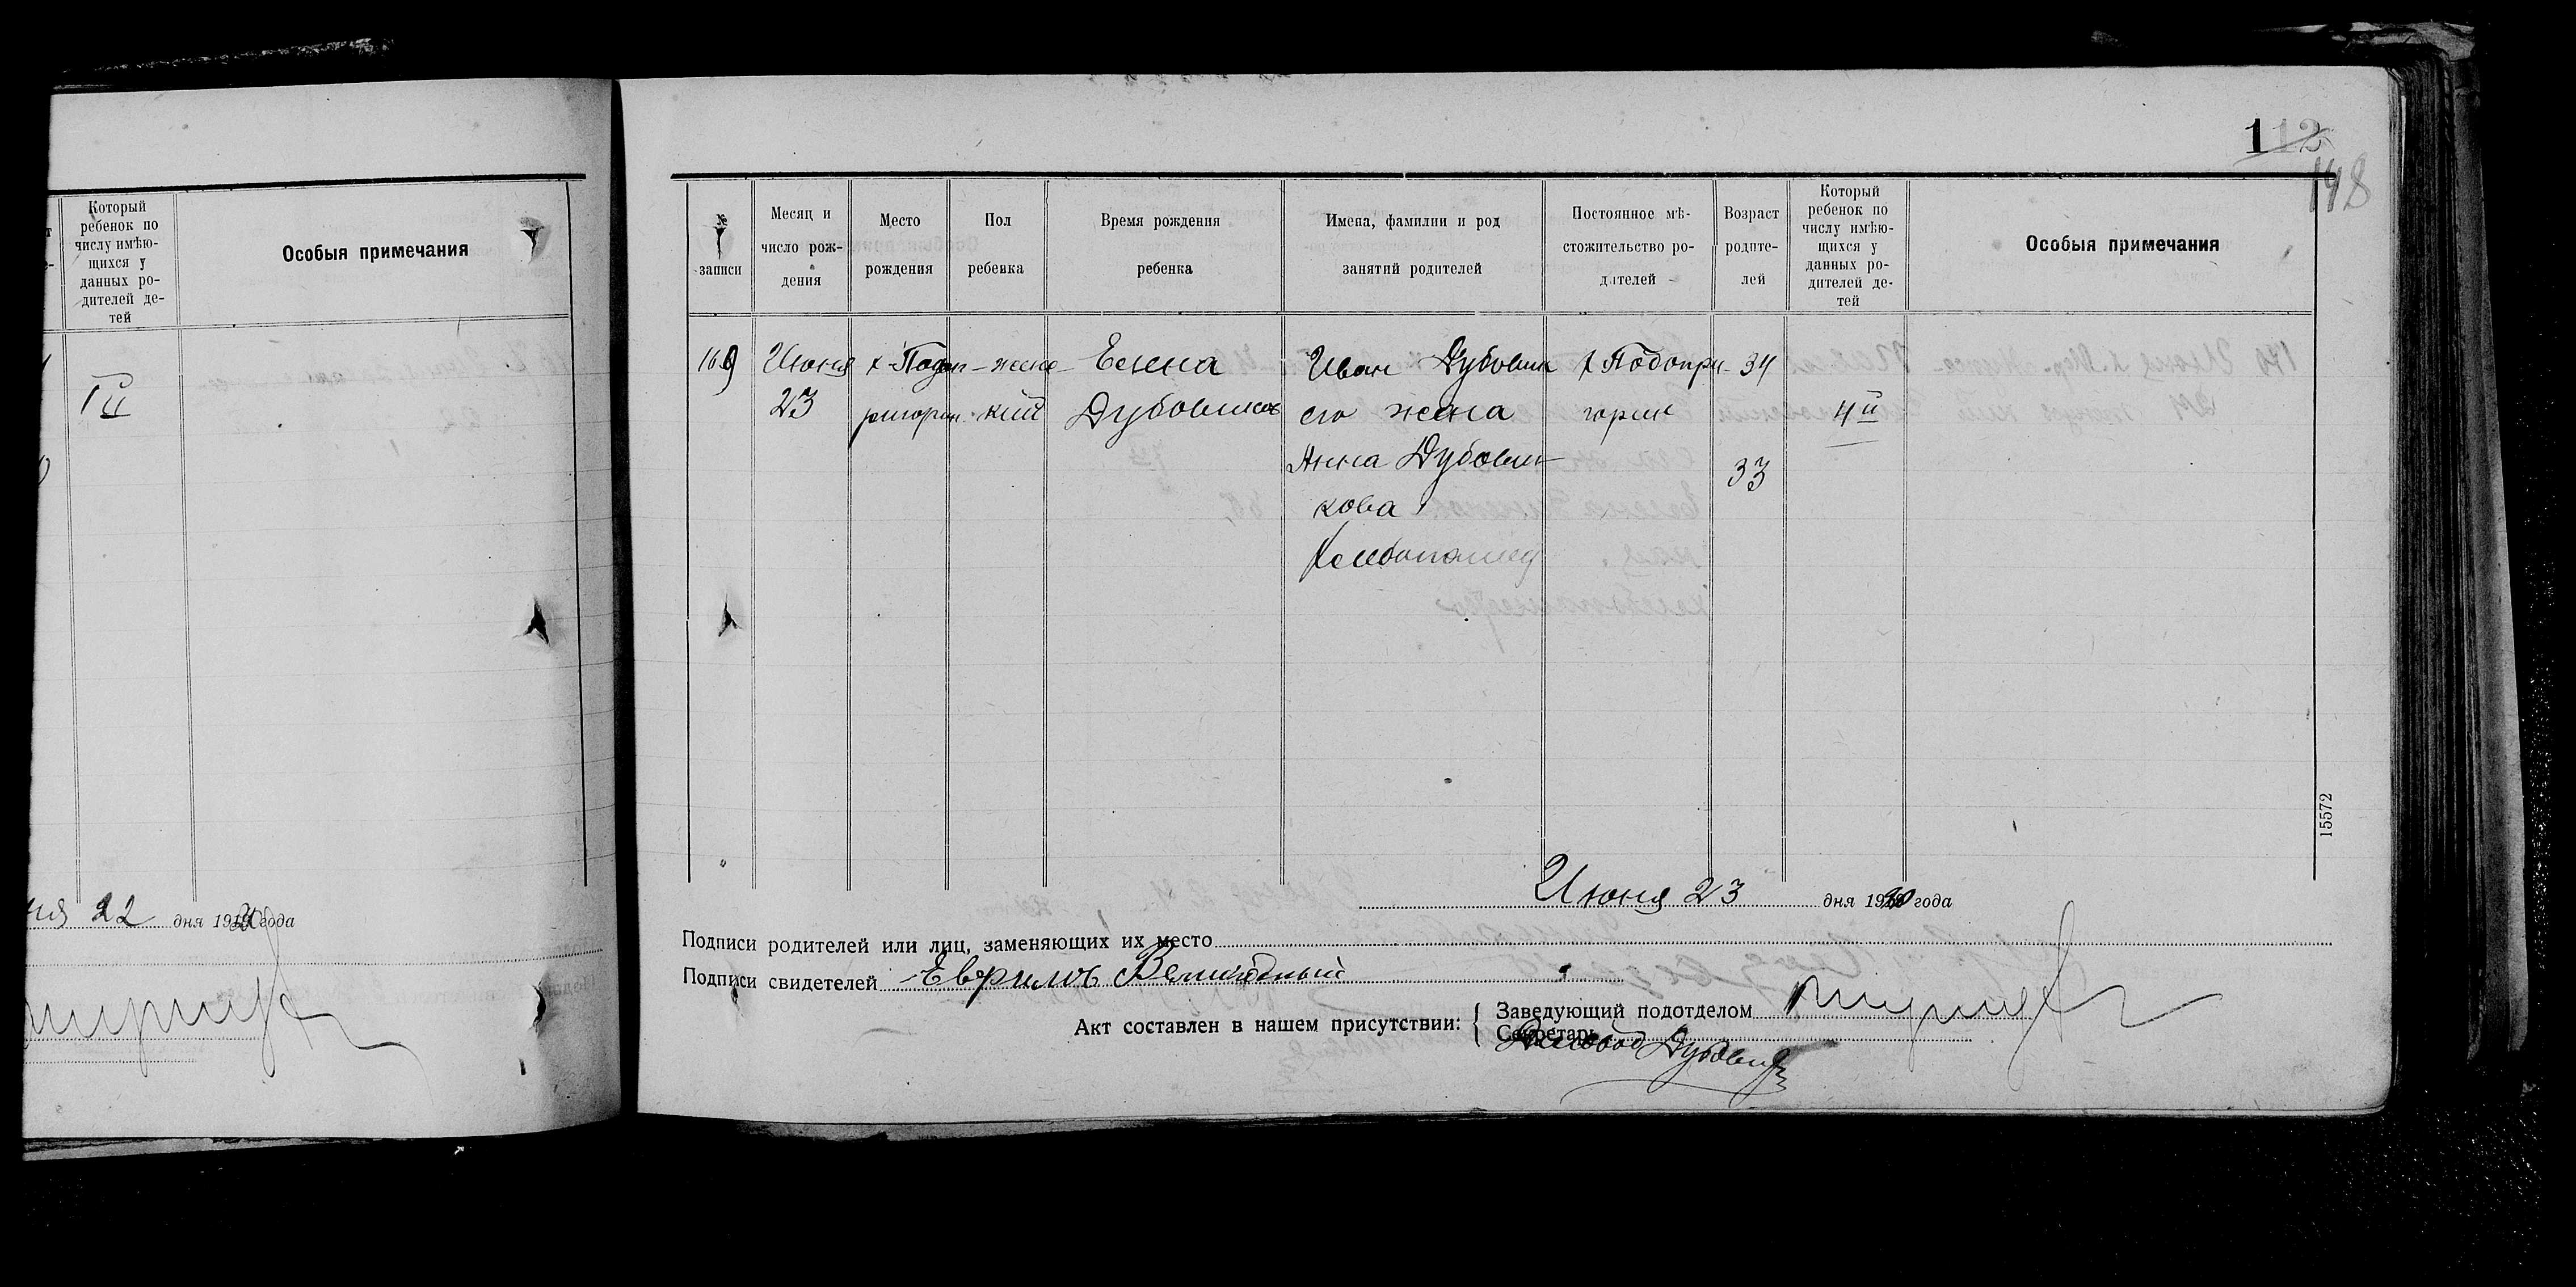 Который
ребенок по
числу имѣю-
щихся у
данных ро-
дителей де-
тей
Особыя примечания
1й
22 дня 1920 года
112
148
№
записи
Месяц и
число рож-
дения
Место
рождения
Пол
ребенка
Время рождения
ребенка
Имена, фамилии и род
занятий родителей
Постоянное мѣ-
стожительство ро-
дителей
Возраст
родите-
лей
Который
ребенок по
числу имѣю-
щихся у
данных ро-
дителей де-
тей
Особыя примечания
169 Июня женс- Елена Иван Дубовик х Подопри- 34
23 кий его жена горик 4й
Анна Дубови-
33
кова
Хлебопашец
15572
Июня 23 дня 1920 года
Подписи родителей или лиц, заменяющих их место
Подписи свидетелей
Акт составлен в нашем присутствии:
Заведующий подотделом
Секретарь